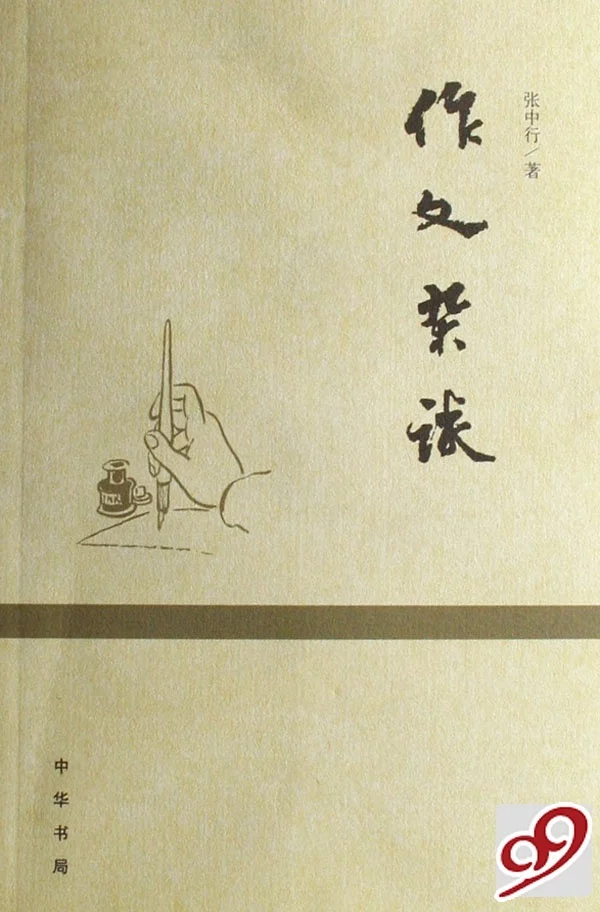 张中行/著
作文杂谈
INK
中华书局
99